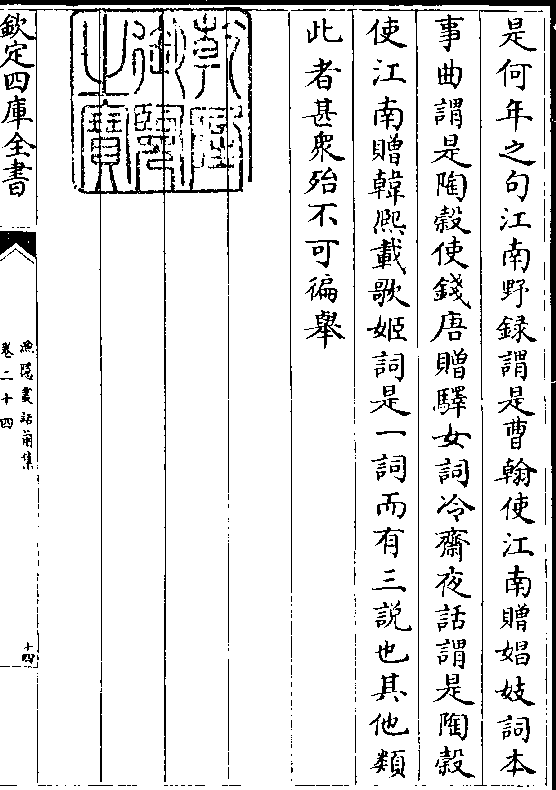 是何年之句江南野録謂是曹翰使江南贈娼妓詞本
事曲謂是陶穀使錢唐贈驛女詞冷齋夜話謂是陶穀
使江南贈韓熈載歌姬詞是一詞而有三説也其他類
此者甚衆殆不可徧舉
乾隆御覽之寶
欽定四庫全書
漁隱叢話前集
卷二十四
十四